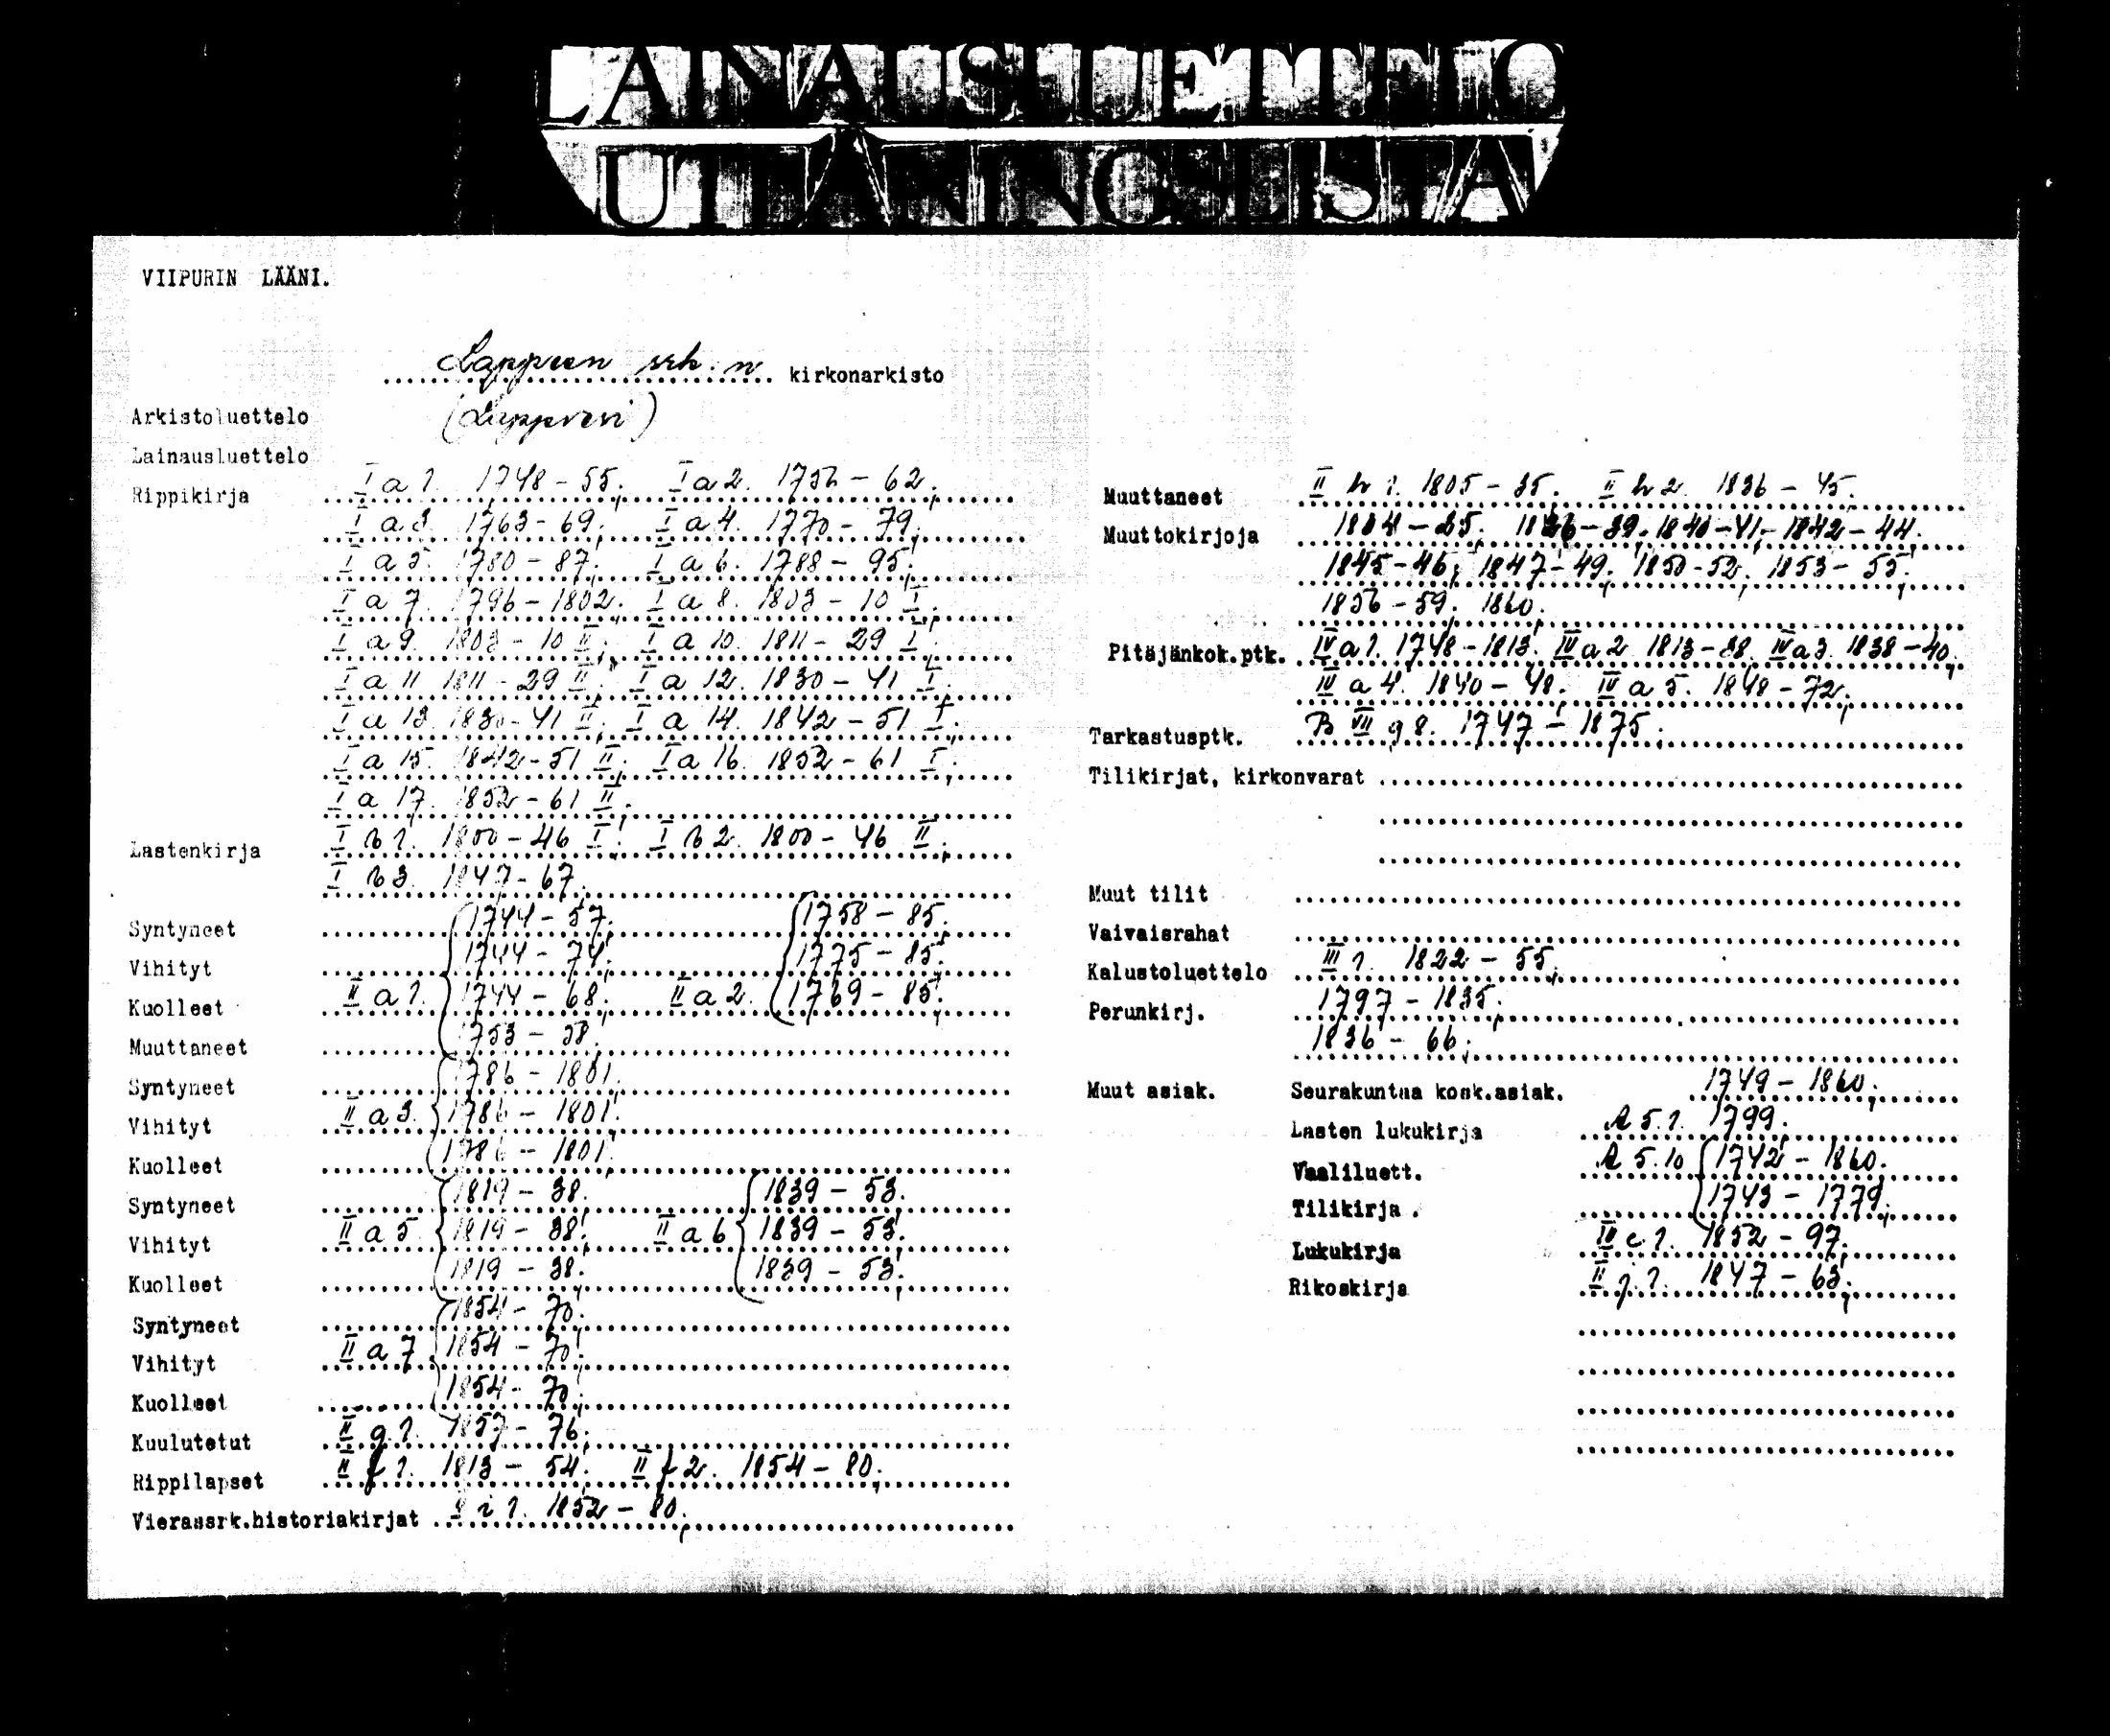 LAINAUSLUETTELO
UTLÅNINGSLISTA
VIIPURIN LÄÄNI.
Lappeen srk:n kirkonarkisto
Arkistoluettelo (Lappvesi)
Lainausluettelo
Rippikirja I a 1. 1748-55; I a 2. 1756-62;
I a 3. 1763-69; I a 4. 1770-79;
I a 5. 1780-87; I a 6. 1788-95;
I a 7. 1796-1802; I a 8. 1803-10 I;
I a 9. 1803-10 II; I a 10. 1811-29 I;
I a 11 1811-29 II; I a 12. 1830-41 I;
I a 13. 1830-41 II; I a 14. 1842-51 I;
I a 15. 1842-51 II; I a 16. 1852-61 I;
I a 17. 1852-61 II;
Lastenkirja I b 1. 1800-46 I; I b 2. 1800-46 II;
I b 3. 1847-67;
Syntyneet 1744-57; 1758-85;
Vihityt 1744-74; 1775-85;
Kuolleet II a 1. 1744-68; II a 2. 1769-85;
Muuttaneet 1753-58;
Syntyneet 1786-1801;
Vihityt II a 3. 1786-1801;
Kuolleet 1786-1801;
Syntyneet 1819-38; 1839-53;
Vihityt II a 5 1819-38; II a 6 1839-53;
Kuolleet 1819-38; 1839-53;
Syntyneet 1854-70;
Vihityt II a 7 1854-70;
Kuolleet 1854-70;
Kuulutetut II g 1. 1857-76;
Rippilapset II f 1. 1813-54; II f 2. 1854-80;
Vierassrk.historiakirjat i 1. 1852-80;
Muuttaneet II b 1. 1805-35; II b 2. 1836-45;
Muuttokirjoja 1834-35; 1836-39; 1840-41; 1842-44;
1845-46; 1847-49; 1850-52; 1853-55;
1856-59; 1860;
Pitäjänkok.ptk. IV a 1. 1748-1813; IV a 2 1813-38; IV a 3. 1838-40;
IV a 4. 1840-48; IV a 5. 1848-72;
Tarkastusptk. B VII g 8. 1747-1875;
Tilikirjat, kirkonvarat
Muut tilit
Vaivaisrahat
Kalustoluettelo III 1. 1822-55;
Perunkirj. 1797-1835;
1836-66;
Muut asiak. Seurakuntaa kosk.asiak. 1749-1860;
Lasten lukukirja 5.1. 1799;
Vaaliluett. 5.10 1742-1860;
Tilikirja 1743-1779;
Lukukirja IV c 1. 1852-97;
Rikoskirja II j 1. 1847-63;